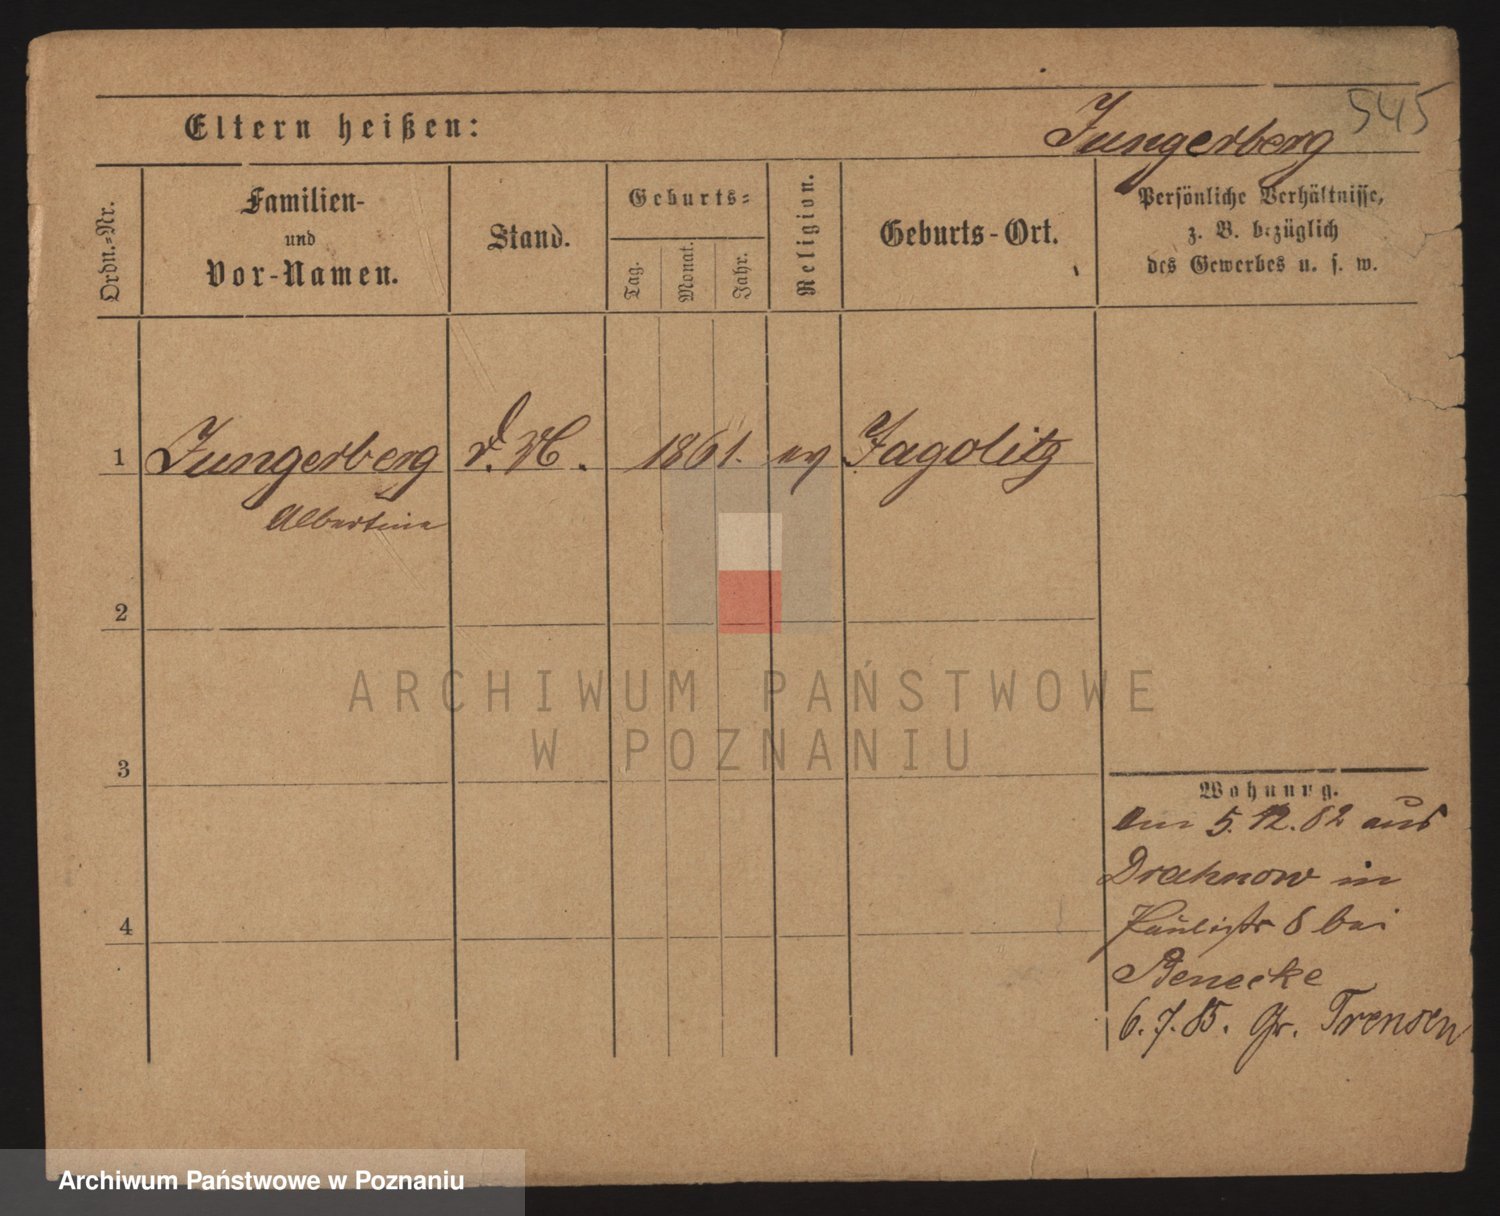 545
Eltern heißen:
Jungerberg
Ordn.-Nr.
Familien-
und
Vor-Namen.
Stand.
Geburts-
Tag.
Monat.
Jahr.
Religion.
Geburts-Ort.
Persönliche Verhältnisse,
z. B. bezüglich
des Gewerbes u. s. w.
1 Jungerberg d. M. 1861. ev Jagolitz
Albertine
2
3
4
Wohnung.
Am 5.12.82 aus
Drahnow in
8 bei
Benecke
6.7.85. Gr. Trensen
ARCHIWUM PAŃSTWOWE
W POZNANIU
Archiwum Państwowe w Poznaniu